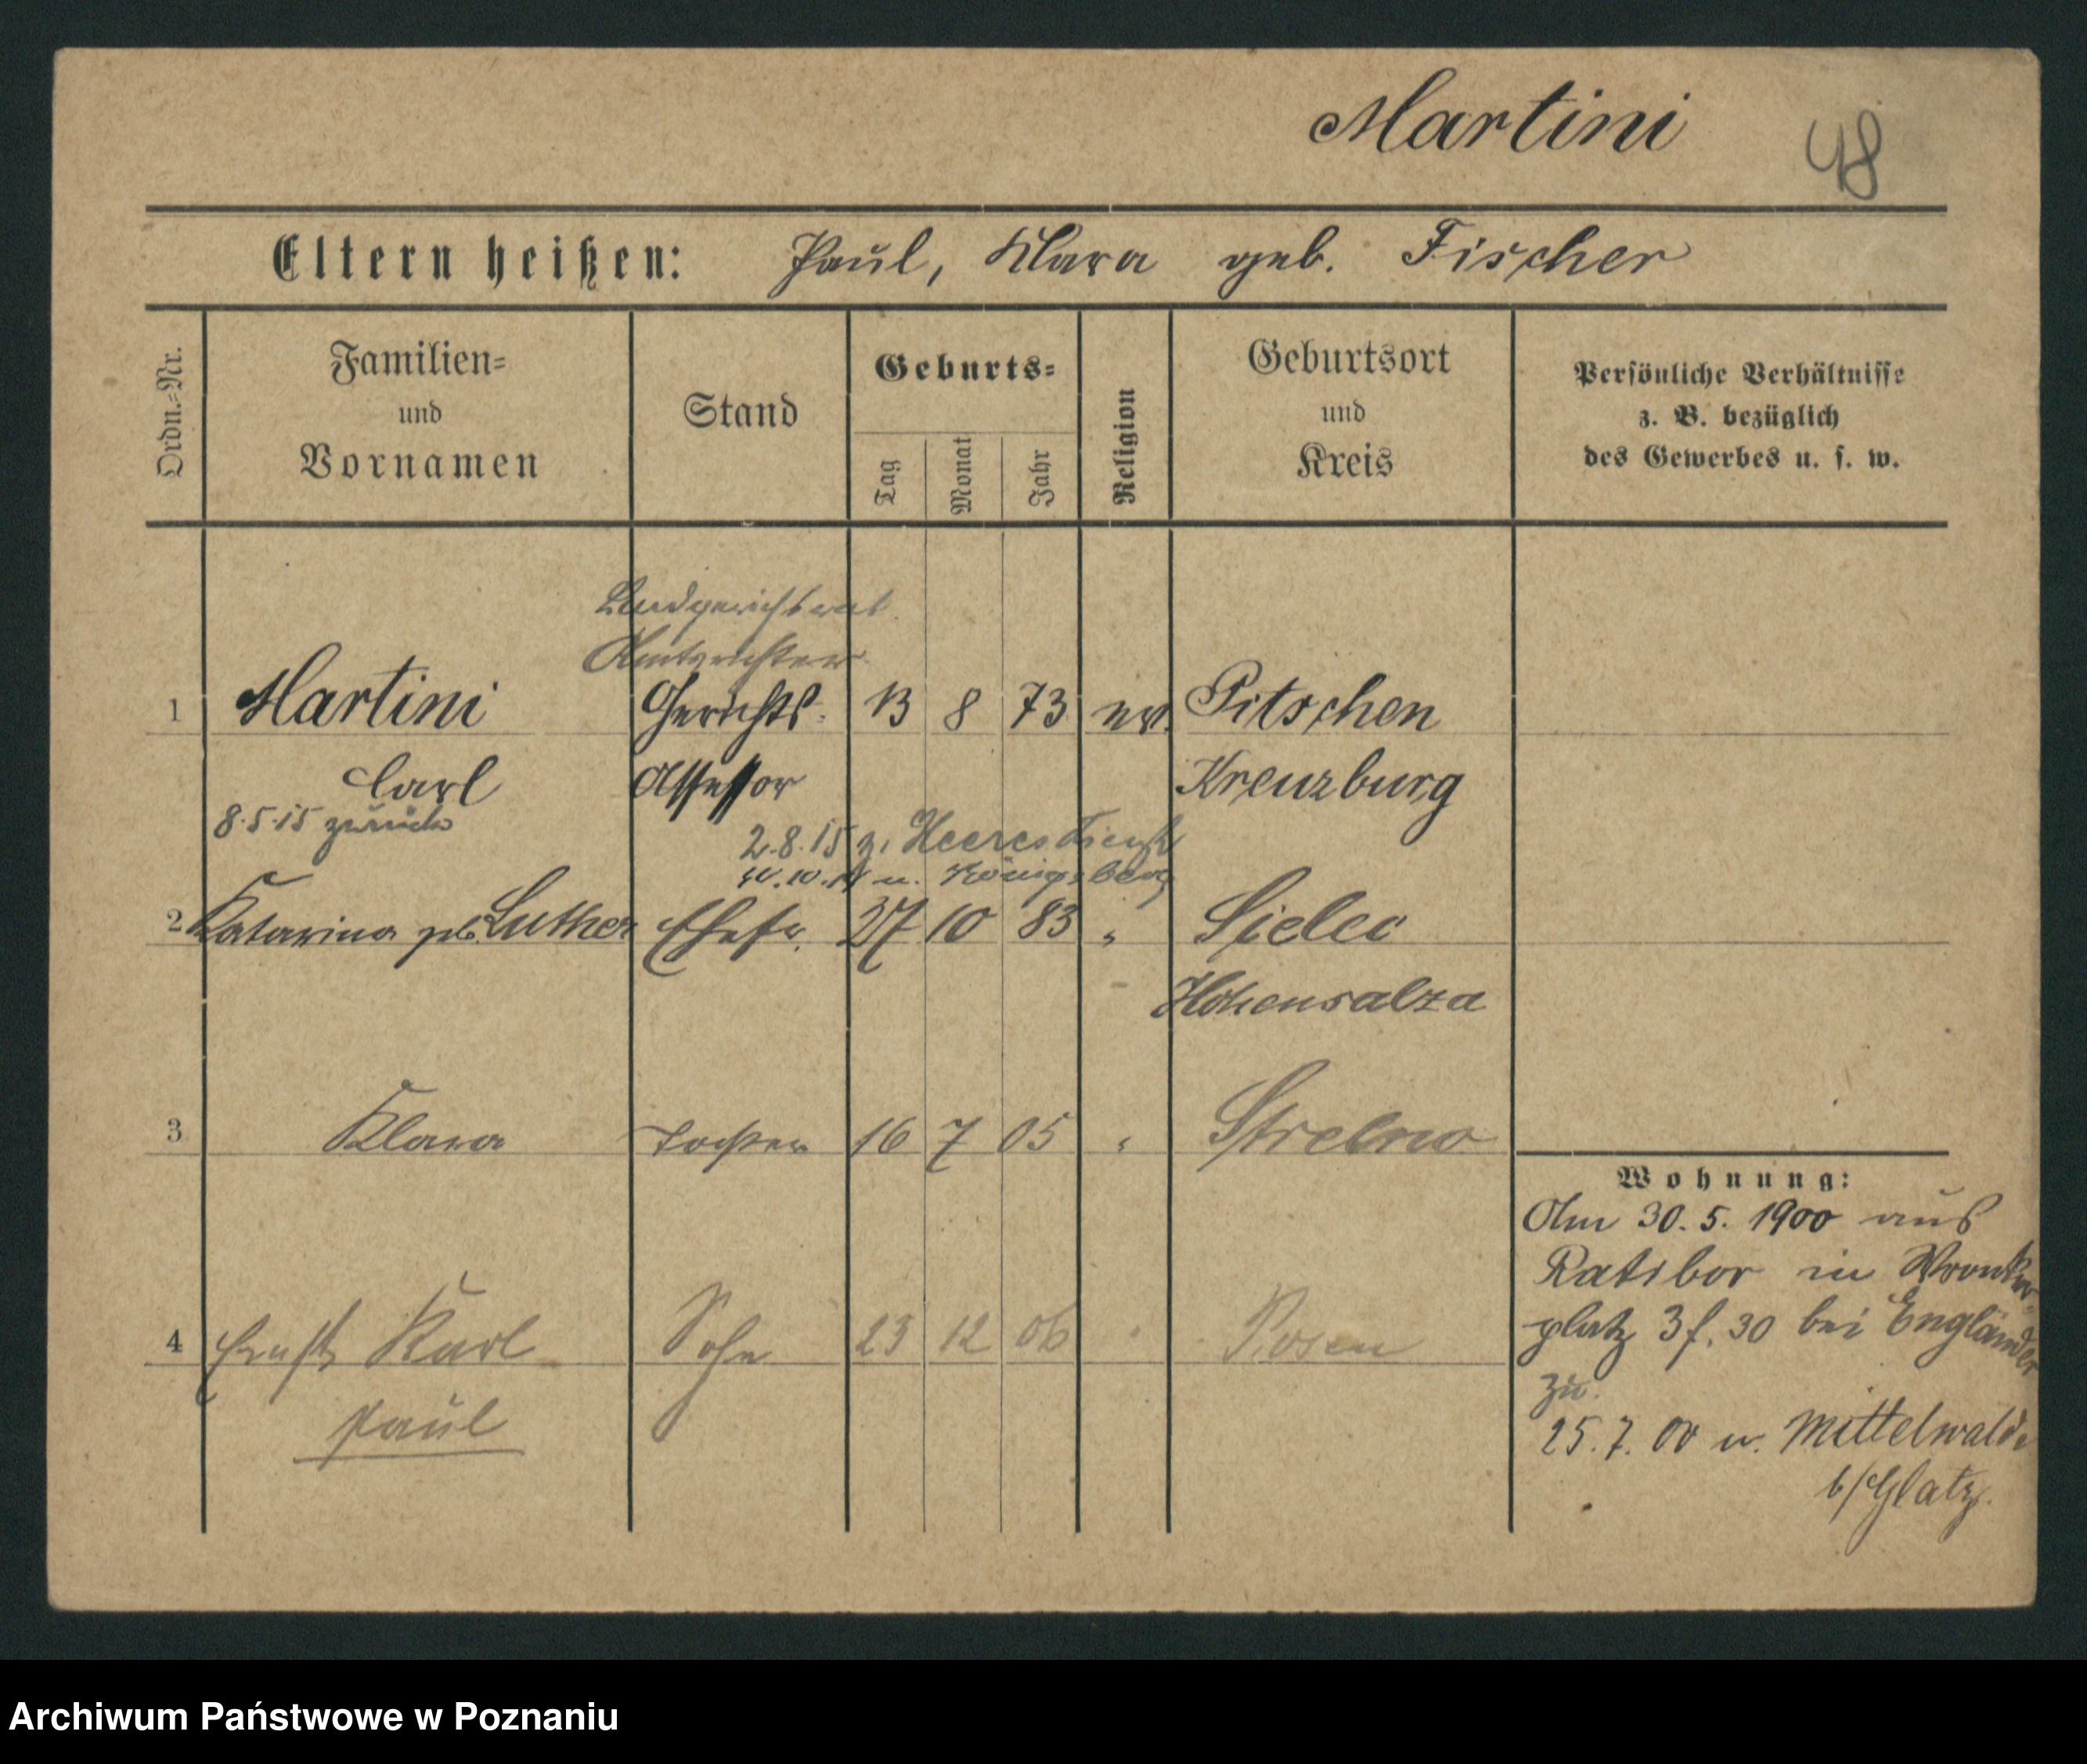 Martini
48
Eltern heißen: Paul, Klara geb. Fischer
Ordn.-Nr.
Familien- und Vornamen
Stand
Geburts-
Tag
Monat
Jahr
Religion
Geburtsort und Kreis
Persönliche Verhältnisse
z. B. bezüglich
des Gewerbes u. s. w.
Landgerichtsrat
Amtsrichter
1 Martini Gerichts- 13 8 73 ev. Pitschen
Carl Assessor Kreuzburg
8.5.15 zurück
2.8.15 z. Heeresdienst
10. n. Königsberg
2 Katarina geb. Luther Ehefr. 27 10 83 " Sielec
Hohensalza
3 Klara Tochter 16 7 05 " Strelno
4 Ernst Karl Sohn 23 12 06 " Posen
Paul
Wohnung:
Am 30. 5. 1900 aus
Ratibor in Wronker-
platz 3 f. 30 bei Engländer
zu.
25. 7. 00 n. Mittelwalde
b/Glatz.
Archiwum Państwowe w Poznaniu